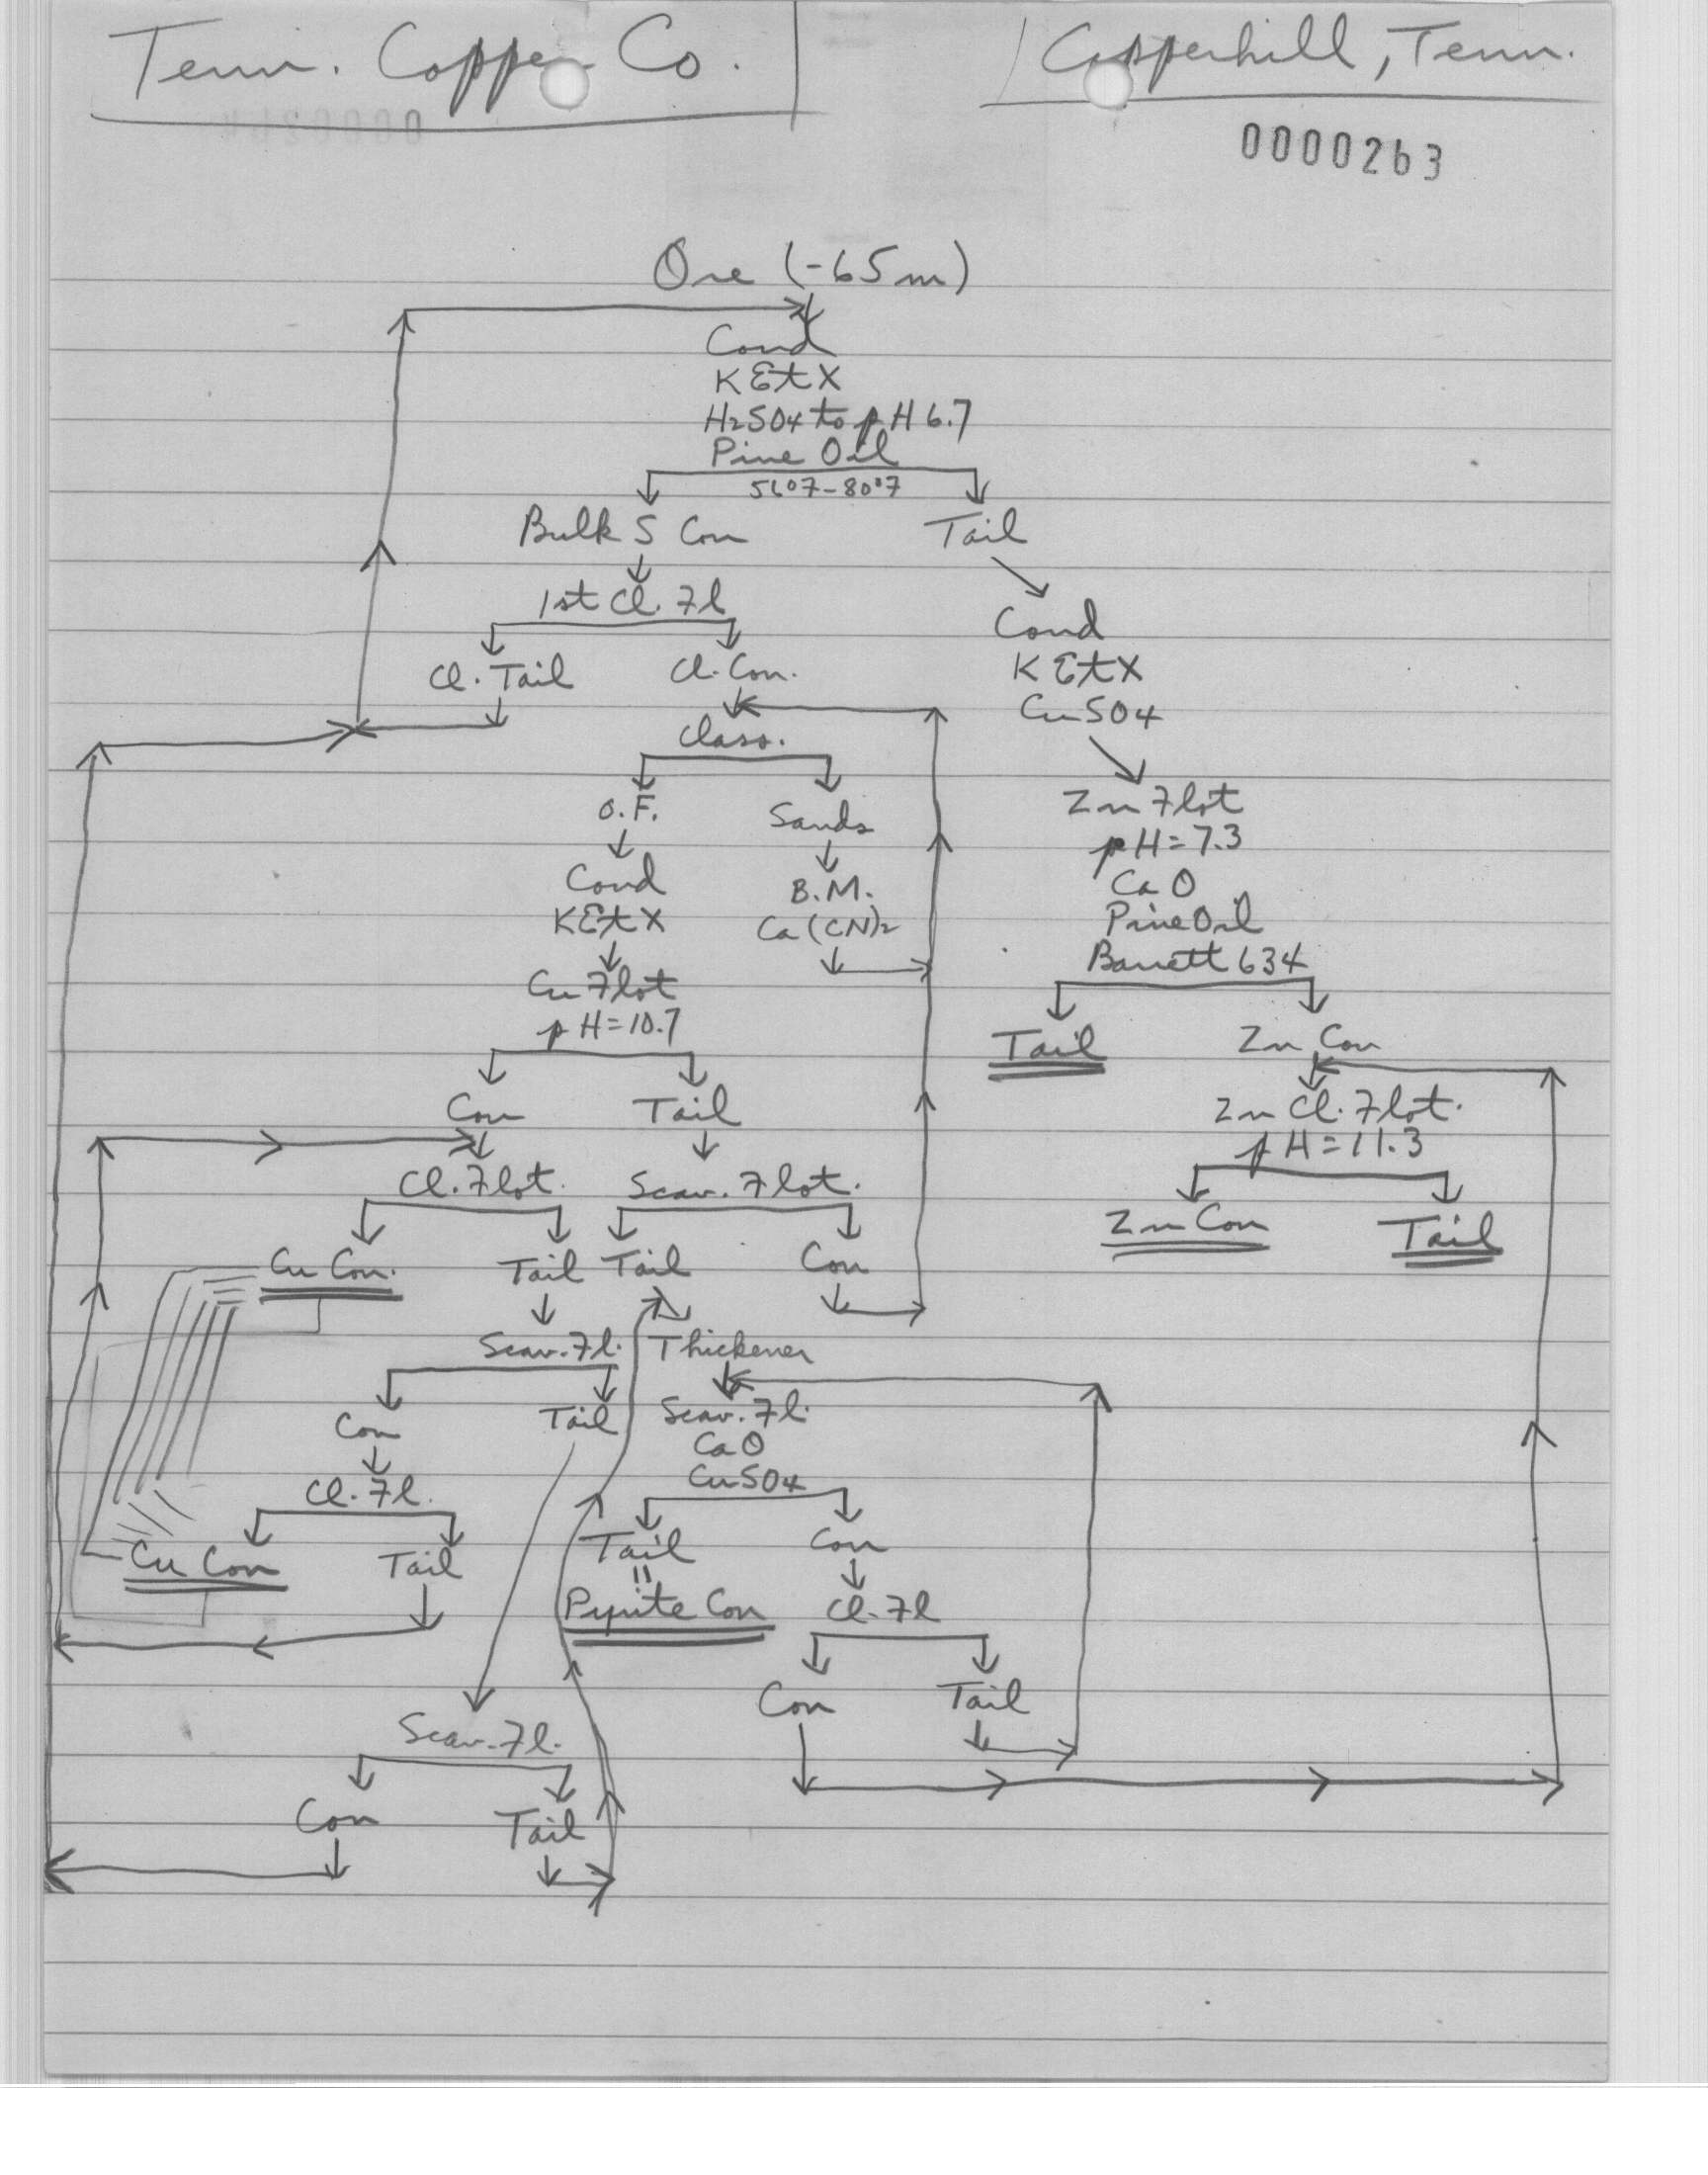 Tenn. Copper Co.
Copperhill, Tenn.
0000263
Ore (-65m)
Cond
KEtX
H2SO4 to pH 6.7
Pine Oil
Bulk S Con
Tail
1st Cl. Fl
Cl. Tail
Cl. Con.
Class.
O.F.
Sands
Cond
KEtX
B.M.
Ca(CN)2
Cu Flot
pH=10.7
Con
Tail
Cl. Flot.
Scav. Flot.
Cu Con.
Tail
Tail
Con
Scav. Fl.
Thickener
Con
Tail
Scav. Fl.
CaO
CuSO4
Cl. Fl.
Tail
Con
Cu Con
Tail
"
Pyrite Con
Cl. Fl
Con
Tail
Scav. Fl.
Con
Tail
Cond
KEtX
CuSO4
Zn Flot
pH=7.3
CaO
Pine Oil
Barrett 634
Tail
Zn Con
Zn Cl. Flot.
pH=11.3
Zn Con
Tail